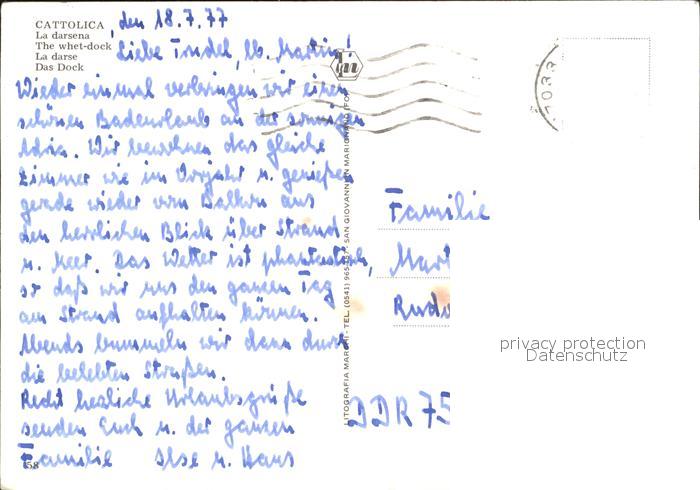 CATTOLICA, den 18.7.77
La darsena
The whet-dock
La darse
Das Dock
Liebe Trudel, lb. Martin!
Wieder einmal verbringen wir einen
schönen Badeurlaub an der sonnigen
Adria. Wir bewohnen das gleiche
Zimmer wie im Vorjahr u. genießen
gerade wieder vom Balkon aus
den herrlichen Blick über Strand
u. Meer. Das Wetter ist phantastisch,
so daß wir uns den ganzen Tag
am Strand aufhalten können.
Abends bummeln wir dann durch
die belebten Straßen.
Recht herzliche Urlaubsgrüße
senden Euch u. der ganzen
Familie Ilse u. Hans
58
LITOGRAFIA MARCHI - TEL. (0541) 965 - SAN GIOVANNI IN MARIGNANO (FO)
Familie
Mart
Rudo
DDR 75
privacy protection
Datenschutz